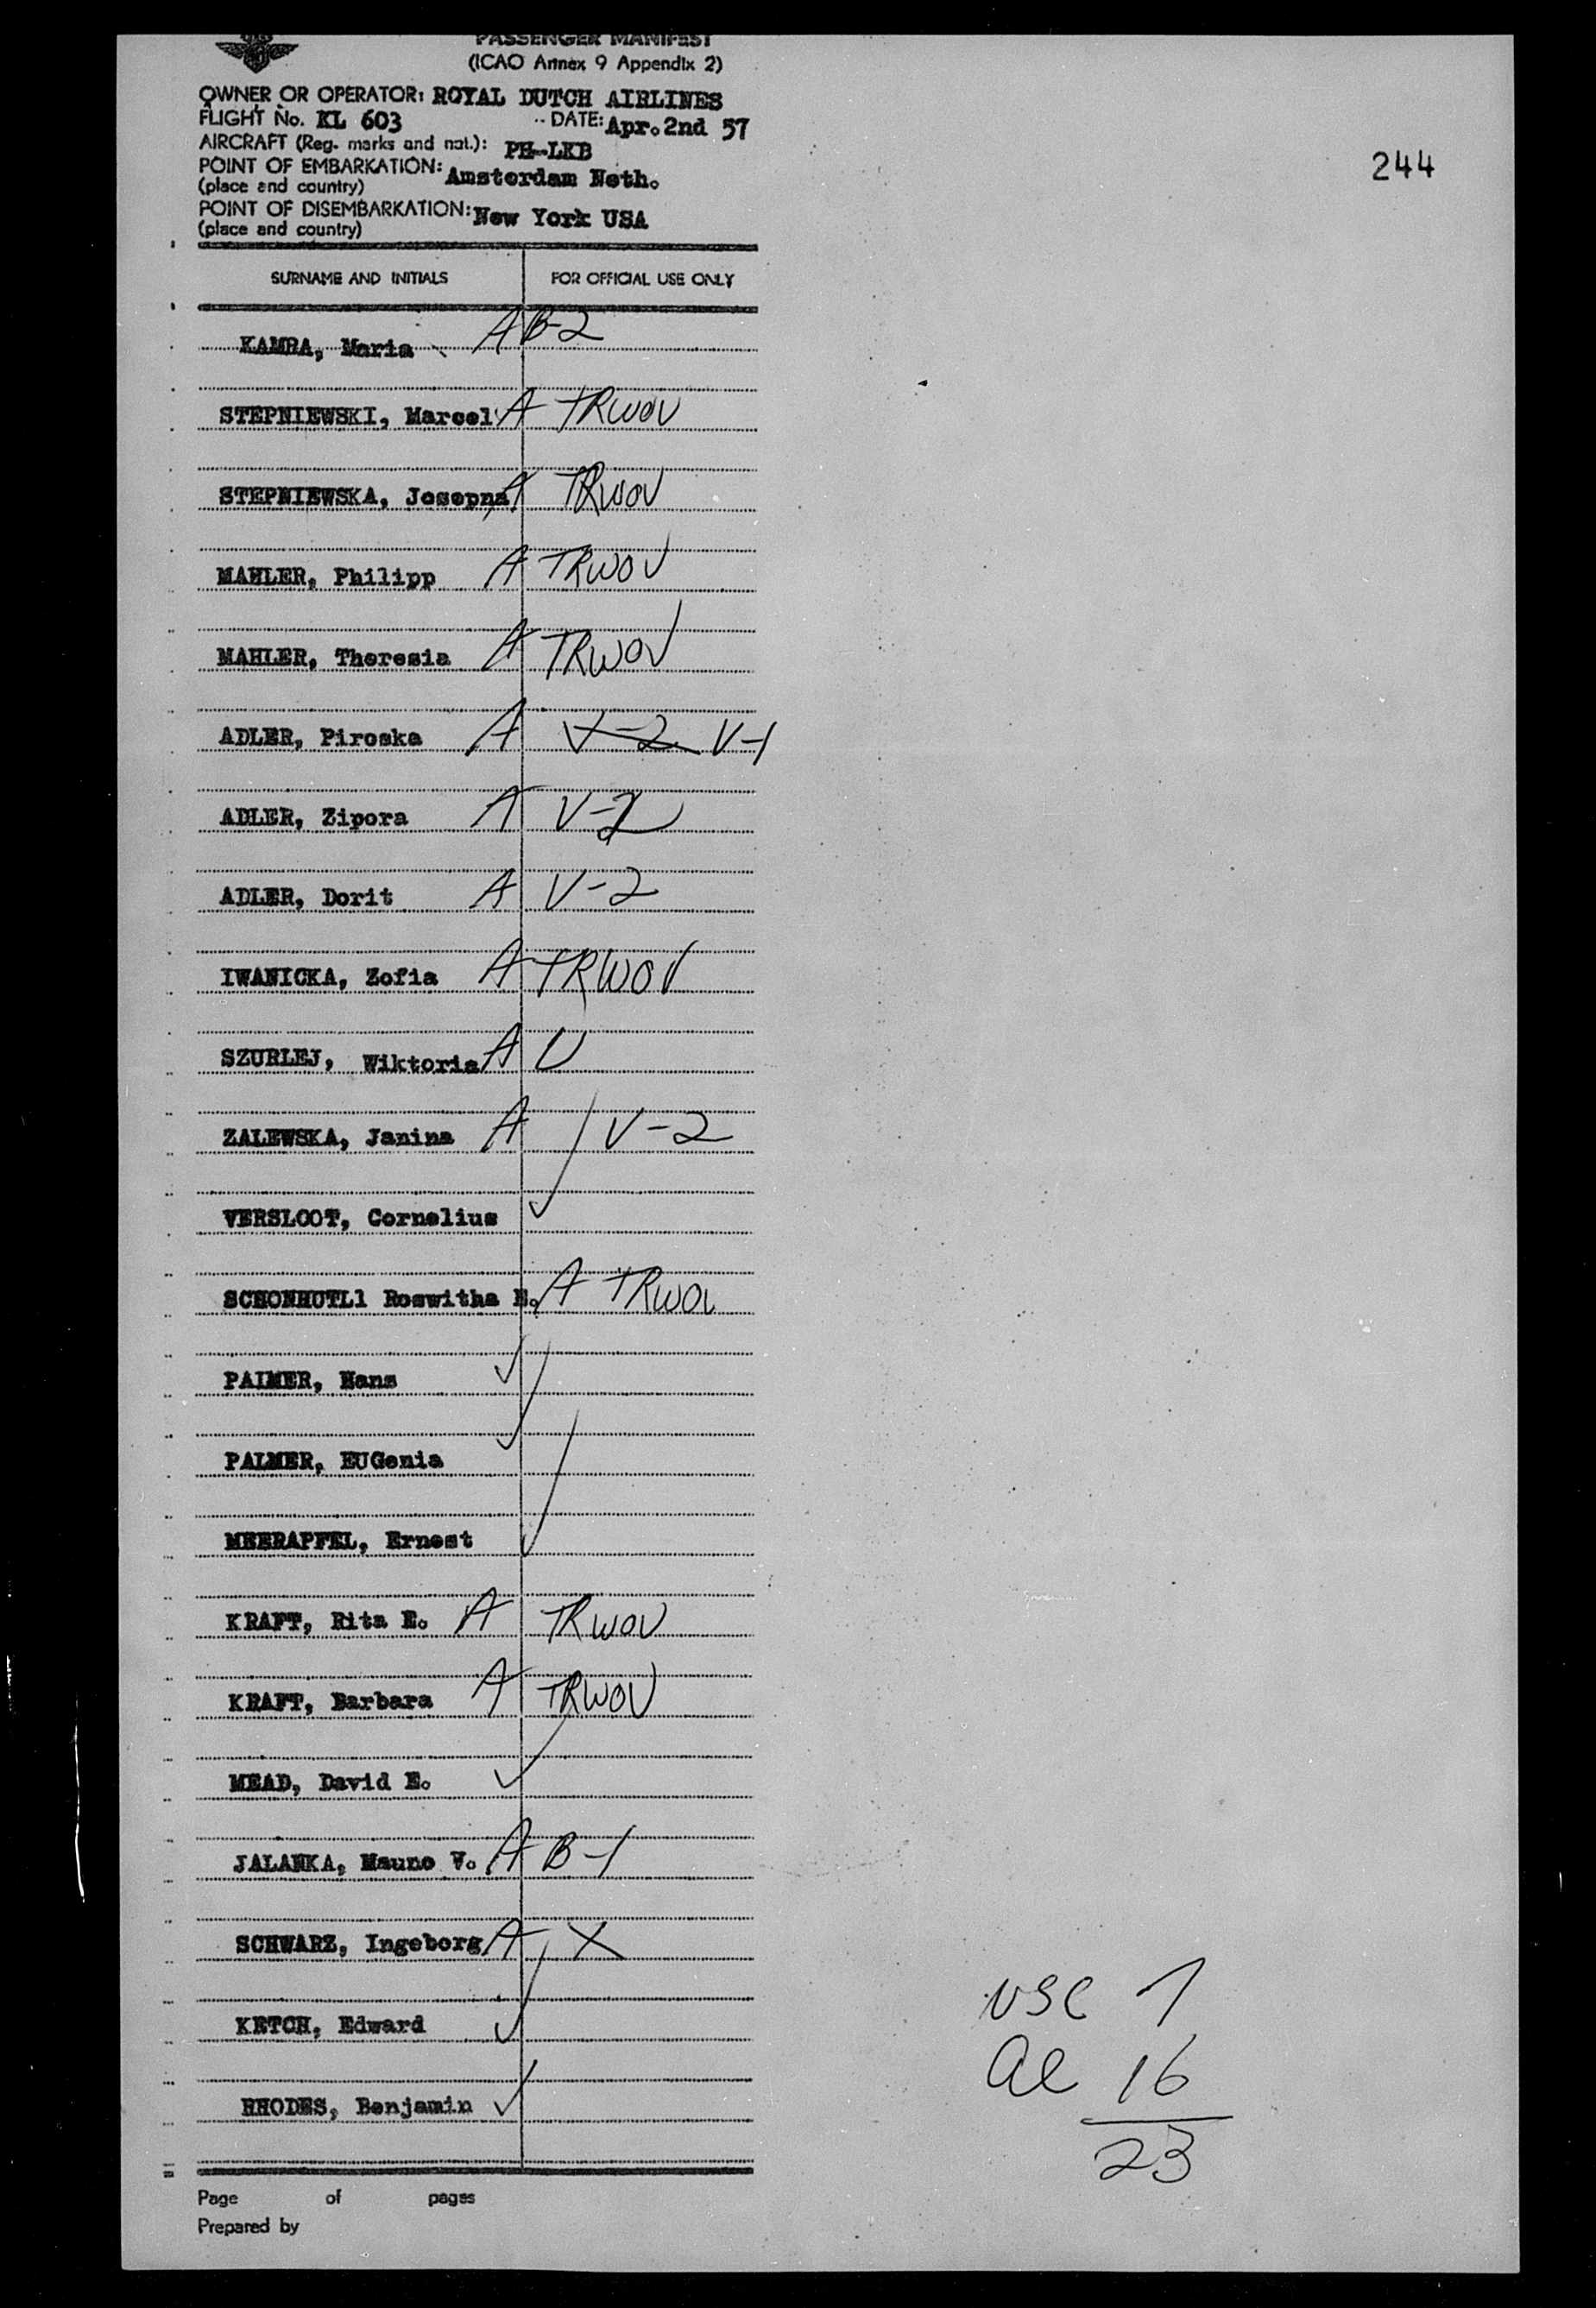 PASSENGER MANIFEST
(ICAO Annex 9 Appendix 2)
OWNER OR OPERATOR: ROYAL DUTCH AIRLINES
FLIGHT No. KL 603 DATE: Apr. 2nd 57
AIRCRAFT (Reg. marks and nat.): PH-LKB
244
POINT OF EMBARKATION: Amsterdam Neth.
(place and country)
POINT OF DISEMBARKATION: New York USA
(place and country)
SURNAME AND INITIALS FOR OFFICIAL USE ONLY
KAMRA, Maria A B-2
STEPNIEWSKI, Marcel A TRWOV
STEPNIEWSKA, Josepna A TRWOV
MAHLER, Philipp A TRWOV
MAHLER, Theresia A TRWOV
ADLER, Piroska A V-2 V-1
ADLER, Zipora A V-2
ADLER, Dorit A V-2
IWANICKA, Zofia A TRWOV
SZURLEJ, Wiktoria A U
ZALEWSKA, Janina A V-2
VERSLOOT, Cornelius ✓
SCHONHUTL1 Roswitha E. A TRWOV
PALMER, Hans ✓
PALMER, EUGenia ✓
MEERAPFEL, Ernest ✓
KRAFT, Rita E. A TRWOV
KRAFT, Barbara A TRWOV
MEAD, David E. ✓
JALANKA, Mauno V. A B-1
SCHWARZ, Ingeborg A X
KETCH, Edward ✓
RHODES, Benjamin ✓
USC 7
Al 16
23
Page of pages
Prepared by